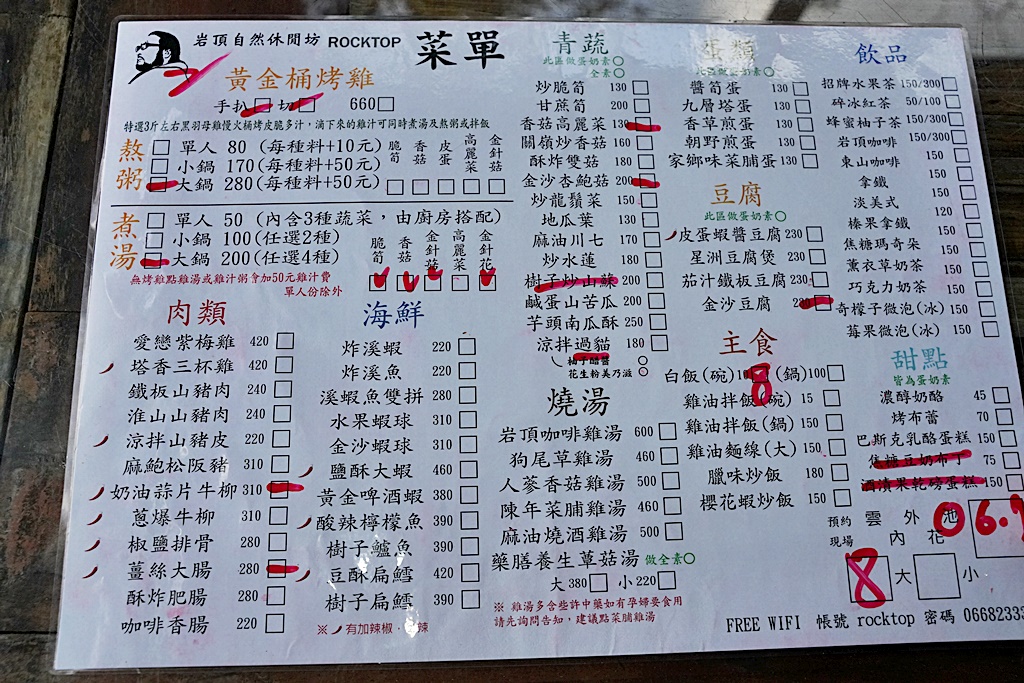 岩頂自然休閒坊 ROCKTOP 菜單
黃金桶烤雞
手扒 切 660
特選3斤左右黑羽母雞慢火桶烤皮脆多汁，滴下來的雞汁可同時煮湯及熬粥或拌飯
熬粥
單人 80 (每種料+10元)
小鍋 170(每種料+50元)
大鍋 280(每種料+50元)
脆筍 香菇 皮蛋 高麗菜 金針菇
煮湯
單人 50 (內含3種蔬菜，由廚房搭配)
小鍋 100(任選2種)
大鍋 200(任選4種)
脆筍 香菇 金針菇 高麗菜 金針花
無烤雞點雞湯或雞汁粥會加50元雞汁費
單人份除外
肉類
愛戀紫梅雞 420
塔香三杯雞 420
鐵板山豬肉 240
淮山山豬肉 240
涼拌山豬皮 220
麻鮑松阪豬 310
奶油蒜片牛柳 310
蔥爆牛柳 310
椒鹽排骨 280
薑絲大腸 280
酥炸肥腸 280
咖啡香腸 220
海鮮
炸溪蝦 220
炸溪魚 220
溪蝦魚雙拼 280
水果蝦球 310
金沙蝦球 310
鹽酥大蝦 460
黃金啤酒蝦 380
酸辣檸檬魚 390
樹子鱸魚 390
豆酥扁鱈 420
樹子扁鱈 390
※ 有加辣椒 辣
青蔬
此區做蛋奶素○
全素○
炒脆筍 130
甘蔗筍 200
香菇高麗菜 130
關嶺炒香菇 160
酥炸雙菇 180
金沙杏鮑菇 200
炒龍鬚菜 150
地瓜葉 130
麻油川七 170
炒水蓮 180
樹子炒山蘇 200
鹹蛋山苦瓜 200
芋頭南瓜酥 250
涼拌過貓 180
柚子醋醬 ○
花生粉美乃滋 ○
燒湯
岩頂咖啡雞湯 600
狗尾草雞湯 460
人蔘香菇雞湯 500
陳年菜脯雞湯 460
麻油燒酒雞湯 500
藥膳養生蕈菇湯 做全素○
大 380 小 220
※ 雞湯多含些許中藥如有孕婦要食用
請先詢問告知，建議點菜脯雞湯
蛋類
此區做蛋奶素○
醬筍蛋 130
九層塔蛋 130
香草煎蛋 130
朝野煎蛋 130
家鄉味菜脯蛋 130
豆腐
此區做蛋奶素○
皮蛋蝦醬豆腐 230
星洲豆腐煲 230
茄汁鐵板豆腐 230
金沙豆腐
主食
白飯(碗) 10 (鍋)100
8
雞油拌飯(碗) 15
雞油拌飯(鍋) 150
雞油麵線(大) 150
臘味炒飯 180
櫻花蝦炒飯 150
飲品
招牌水果茶 150/300
碎冰紅茶 50/100
蜂蜜柚子茶 150/300
岩頂咖啡 150/300
東山咖啡 150
拿鐵 150
淡美式 120
榛果拿鐵 150
焦糖瑪奇朵 150
薰衣草奶茶 150
巧克力奶茶 150
奇檬子微泡(冰) 150
莓果微泡(冰) 150
甜點
皆為蛋奶素
濃醇奶酪 45
烤布蕾 70
巴斯克乳酪蛋糕 150
焦糖豆奶布丁 75
酒漬果乾磅蛋糕 150
預約 雲 外 池
現場 內 花
06.
8 大 小
FREE WIFI 帳號 rocktop 密碼 0668233